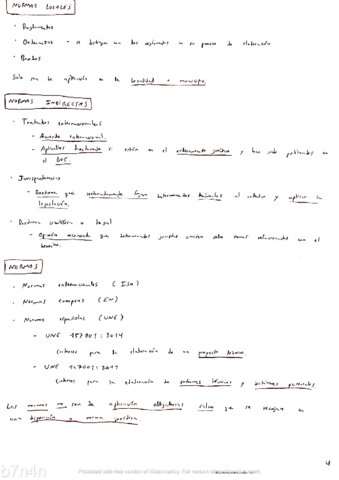 NORMAS LOCALES
· Reglamentos
· Ordenanzas → se distinguen un los reglamentos en su proceso de elaboración
· Bandos
Solo son de aplicación en la localidad o municipio.
NORMAS INDIRECTAS
· Tratados internacionales
- Acuerdo internacional.
- Aplicables directamente si están en el ordenamiento jurídico y han sido publicados en
el BOE.
· Jurisprudencia
- Doctrina que reiteradamente fijan determinados tribunales al interpretar y aplicar la
legislación.
· Doctrina científica o legal
- Opinión que determinados juristas emiten sobre temas relacionados con el
derecho.
NORMAS
· Normas internacionales (ISO)
· Normas europeas (EN)
· Normas españolas (UNE)
- UNE 157001:2014
Criterios para la elaboración de un proyecto técnico.
- UNE
Criterios para la elaboración de informes técnicos y dictámenes periciales
Las normas no son de aplicación obligatoria salvo que se recojan en
una disposición o norma jurídica
4
b7n4n